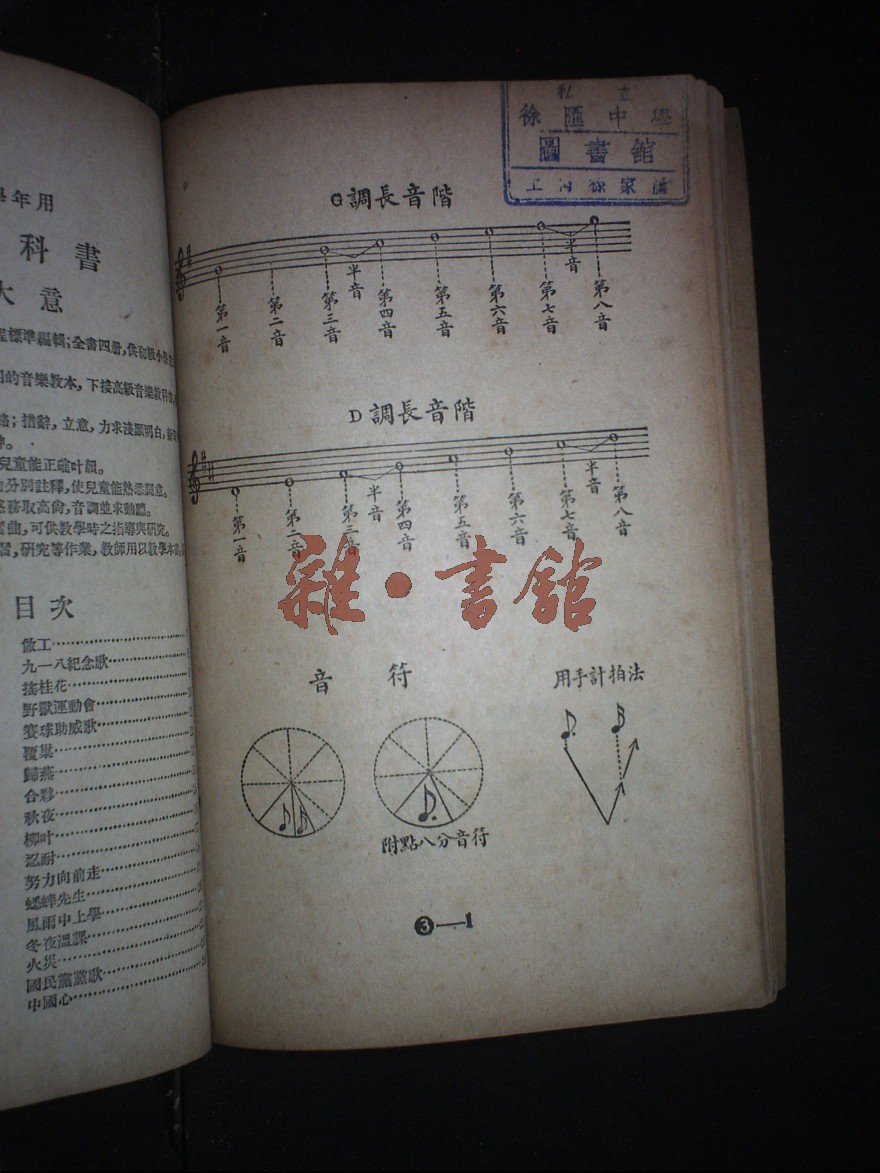 學年用
科書
大意
程標準編輯;全書四册,供初級小學
的音樂教本,下接高級音樂教科
措辭,立意,力求淺顯明白,
兒童能正確叶韻。
分別註釋,使兒童能熟悉詞意。
務取高尚,音調並求動聽。
曲,可供教學時之指導與研究。
習,研究等作業,教師用以教學本
目次
做工
九一八紀念歌
搖桂花
野獸運動會
賽球助威歌
覆巢
歸燕
合夥
秋夜
柳叶
忍耐
努力向前走
蟋蟀先生
風雨中上學
冬夜溫課
火災
國民黨黨歌
中國心
私立
徐匯中學
圖書館
上海徐家匯
G調長音階
半音
半音
第一音
第二音
第三音
第四音
第五音
第六音
第七音
第八音
D調長音階
半音
半音
第一音
第二音
第三音
第四音
第五音
第六音
第七音
第八音
雜·書館
音符
用手計拍法
附點八分音符
3—1